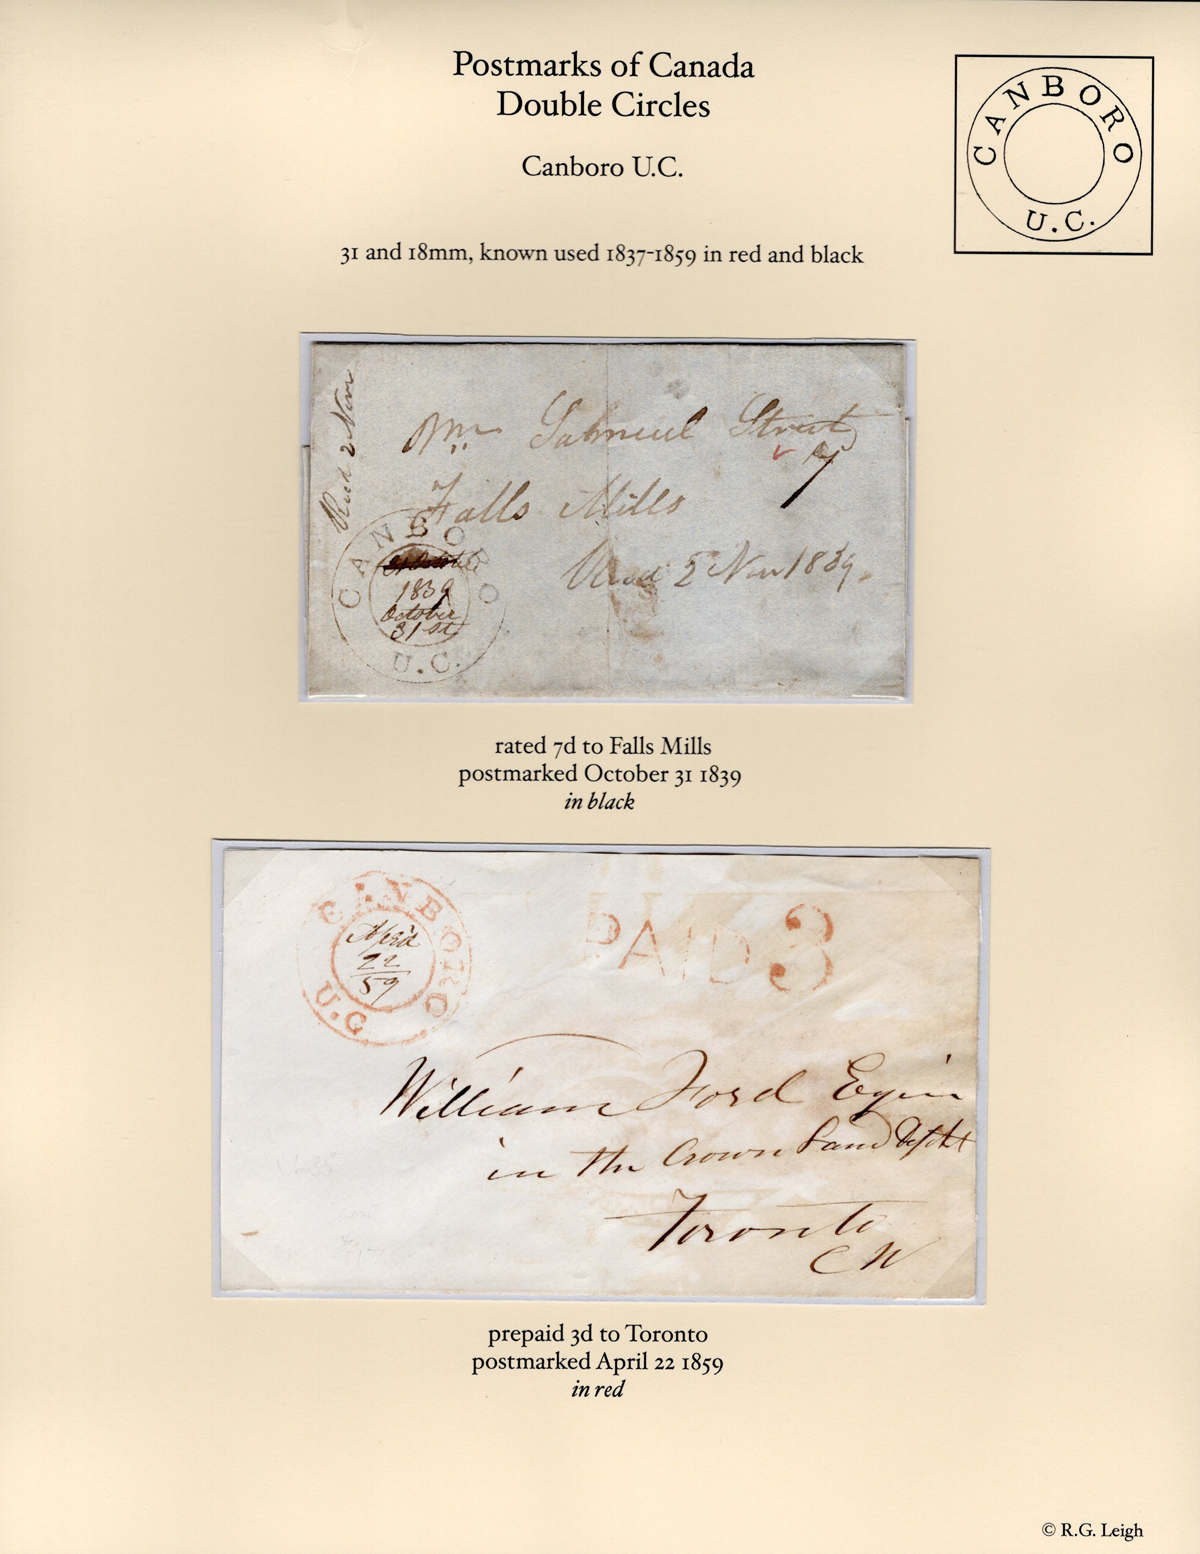 Postmarks of Canada
Double Circles
Canboro U.C.
CANBORO
U.C.
31 and 18mm, known used 1837-1859 in red and black
Recd 2 Nov
Mr Samuel Street
7
Falls Mills
Recd 2 Nov 1839.
CANBORO
1839
October
31st
U.C.
rated 7d to Falls Mills
postmarked October 31 1839
in black
CANBORO
April
22
59
U.C
PAID 3
William Ford
in the Crown Land
Toronto
C W
prepaid 3d to Toronto
postmarked April 22 1859
in red
© R.G. Leigh